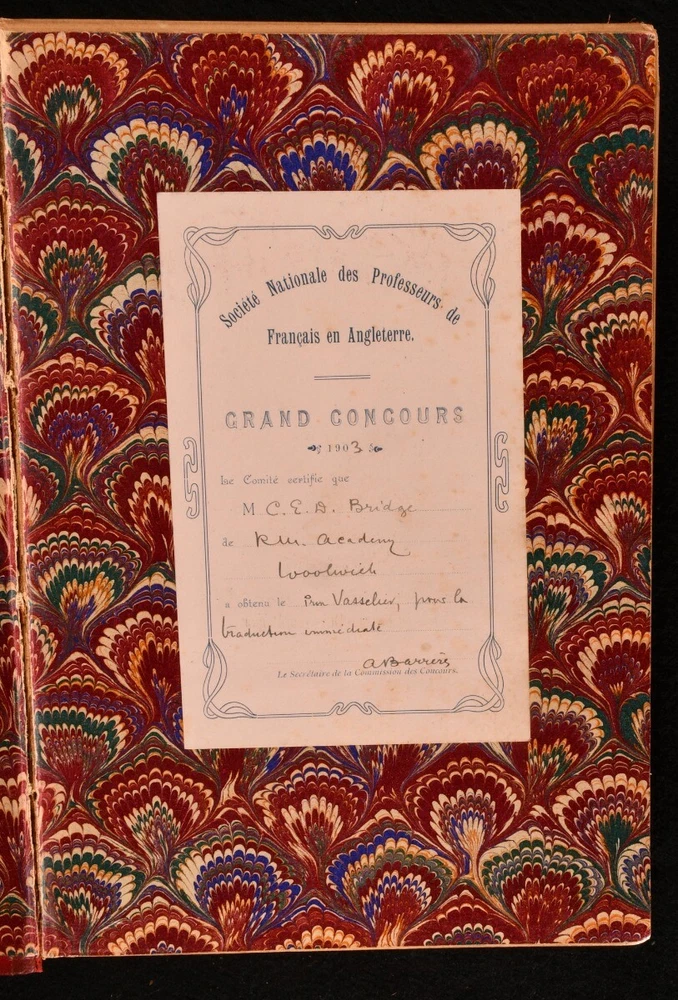 Société Nationale des Professeurs de
Français en Angleterre.
GRAND CONCOURS
1903
Le Comité certifie que
M C. E. D. Bridge
de R.M. Academy
Woolwich
a obtenu le Prix Vasselier, pour la
traduction immédiate
A Barrère
Le Secrétaire de la Commission des Concours.